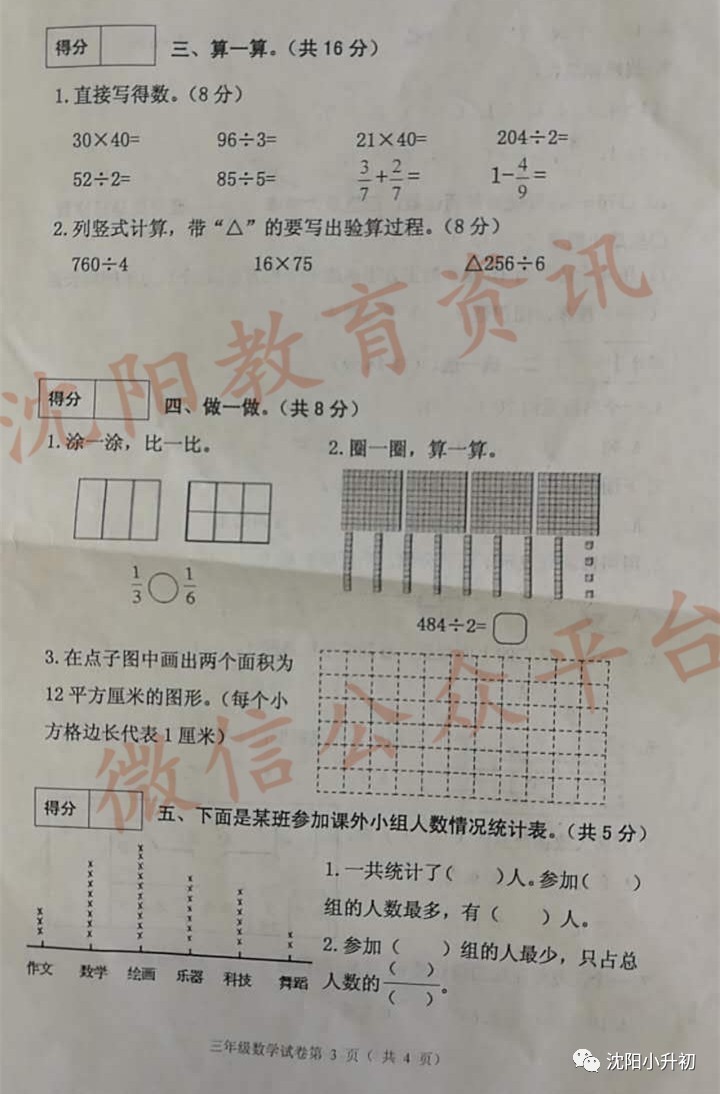 得分
三、算一算。（共16分）
1.直接写得数。（8分）
30×40= 96÷3= 21×40= 204÷2=
52÷2= 85÷5= 3/7+2/7= 1-4/9=
2.列竖式计算，带“△”的要写出验算过程。（8分）
760÷4 16×75 △256÷6
沈阳教育资讯
得分
四、做一做。（共8分）
1.涂一涂，比一比。
1/3○1/6
2.圈一圈，算一算。
484÷2=
3.在点子图中画出两个面积为
12平方厘米的图形。（每个小
方格边长代表1厘米）
微信公众平台
得分
五、下面是某班参加课外小组人数情况统计表。（共5分）
作文 数学 绘画 乐器 科技 舞蹈
1.一共统计了（ ）人。参加（ ）
组的人数最多，有（ ）人。
2.参加（ ）组的人最少，只占总
人数的( )/( )。
三年级数学试卷第 3 页（共 4 页）
沈阳小升初